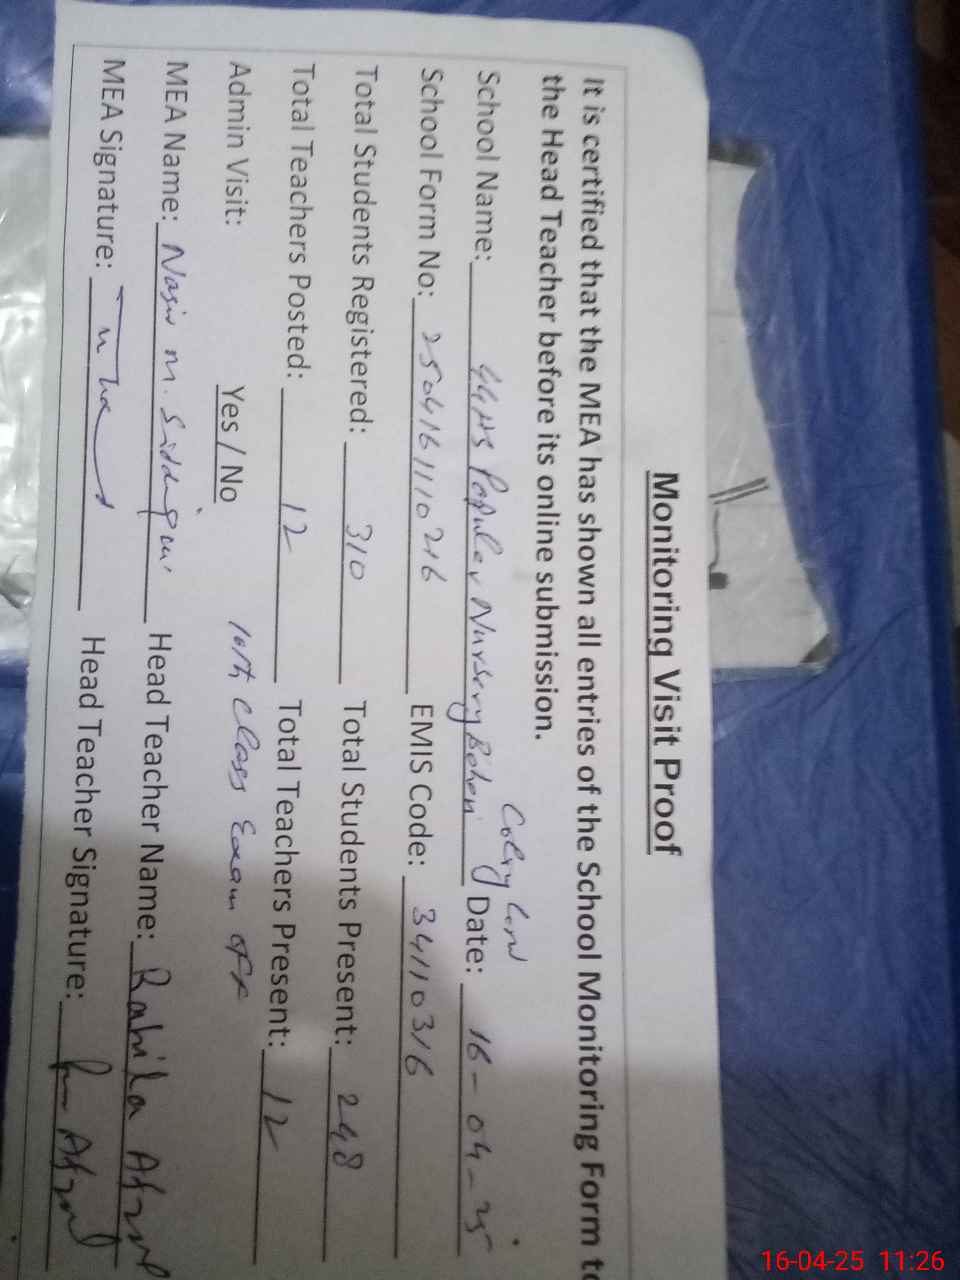 Monitoring Visit Proof
It is certified that the MEA has shown all entries of the School Monitoring Form to
the Head Teacher before its online submission.
School Name: GGHS Popular Nursery Behari Colny Lond Date: 16-04-25
School Form No: 2504161110216 EMIS Code: 34110316
Total Students Registered: 310 Total Students Present: 248
Total Teachers Posted: 12 Total Teachers Present: 12
Admin Visit: Yes / No 10th Class Exam off
MEA Name: Nasir M. Siddiqui Head Teacher Name: Rahila Afzal
MEA Signature: Head Teacher Signature: Afzal
16-04-25 11:26